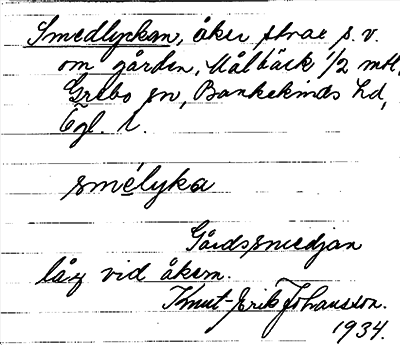 Smedlyckan, åker strax s.v.
om gården, Målbäck 1/2 mtl,
Grebo sn, Bankekinds hd,
Ögl. l.
smélyka
Gårdssmedjan
låg vid åkern.
Knut-Erik Johansson.
1934.